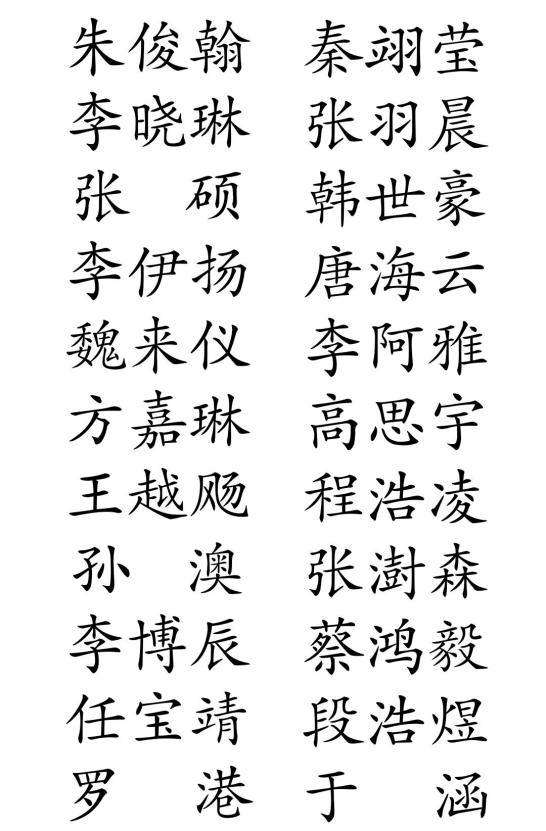 朱俊翰 秦翊莹
李晓琳 张羽晨
张 硕 韩世豪
李伊扬 唐海云
魏来仪 李阿雅
方嘉琳 高思宇
王越飏 程浩凌
孙 澳 张澍森
李博辰 蔡鸿毅
任宝靖 段浩煜
罗 港 于 涵